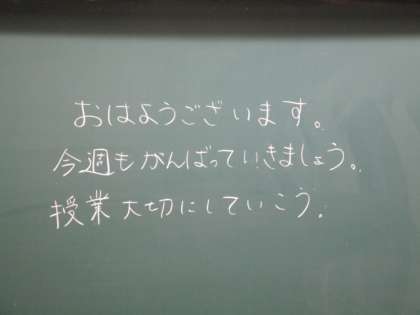 おはようございます。
今週もがんばっていきましょう。
授業大切にしていこう。